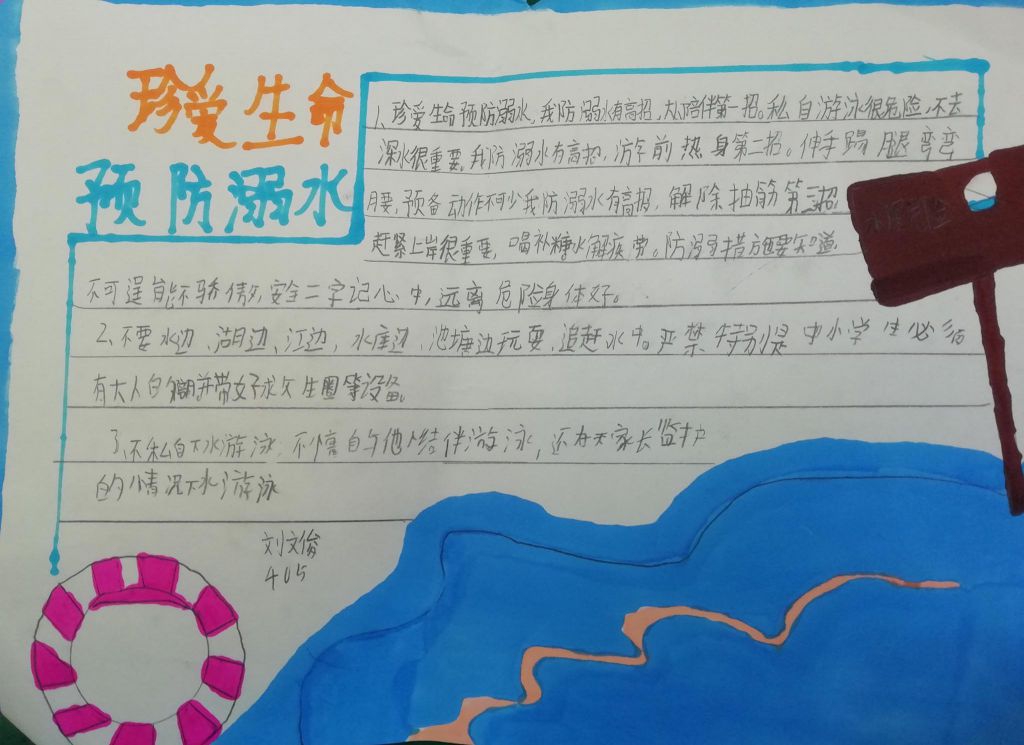 珍爱生命
预防溺水
1、珍爱生命预防溺水，我防溺水有高招，大人陪伴第一招。私自游泳很危险，不去
深水很重要。我防溺水有高招，游泳前热身第二招。伸手踢腿弯弯
腰，预备动作不可少我防溺水有高招，解除抽筋第三招
赶紧上岸很重要，喝补糖水解疲劳。防溺水措施要知道
不可逞能不骄傲，安全二字记心中，远离危险身体好。
2、不要水边、湖边、江边，水库边，池塘边玩耍、追赶水中。严禁特别是中小学生必须
有大人的陪并带好救生圈等设备。
3、不私自下水游泳；不擅自与他人结伴游泳，还有无家长监护
的情况下水游泳
刘文俊
405